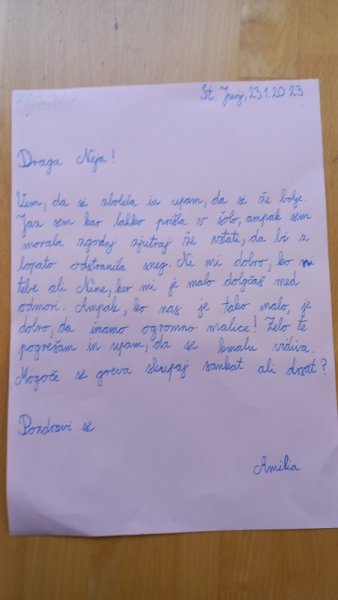 Št. Jurij, 23.1.2023
Draga Neja!
Vem, da si zbolela in upam, da si že bolje.
Jaz sem kar lahko prišla v šolo, ampak sem
morala zgodaj zjutraj že vstati, da bi z
lopato odstranila sneg. Ni mi dobro, ko ni
tebe ali Nine, ker mi je malo dolgčas med
odmori. Ampak, ko nas je tako malo, je
dobro, da imamo ogromno malice! Zelo te
pogrešam in upam, da se kmalu vidiva.
Mogoče se greva skupaj sankat ali drsat?
Pozdravi se
Amelia